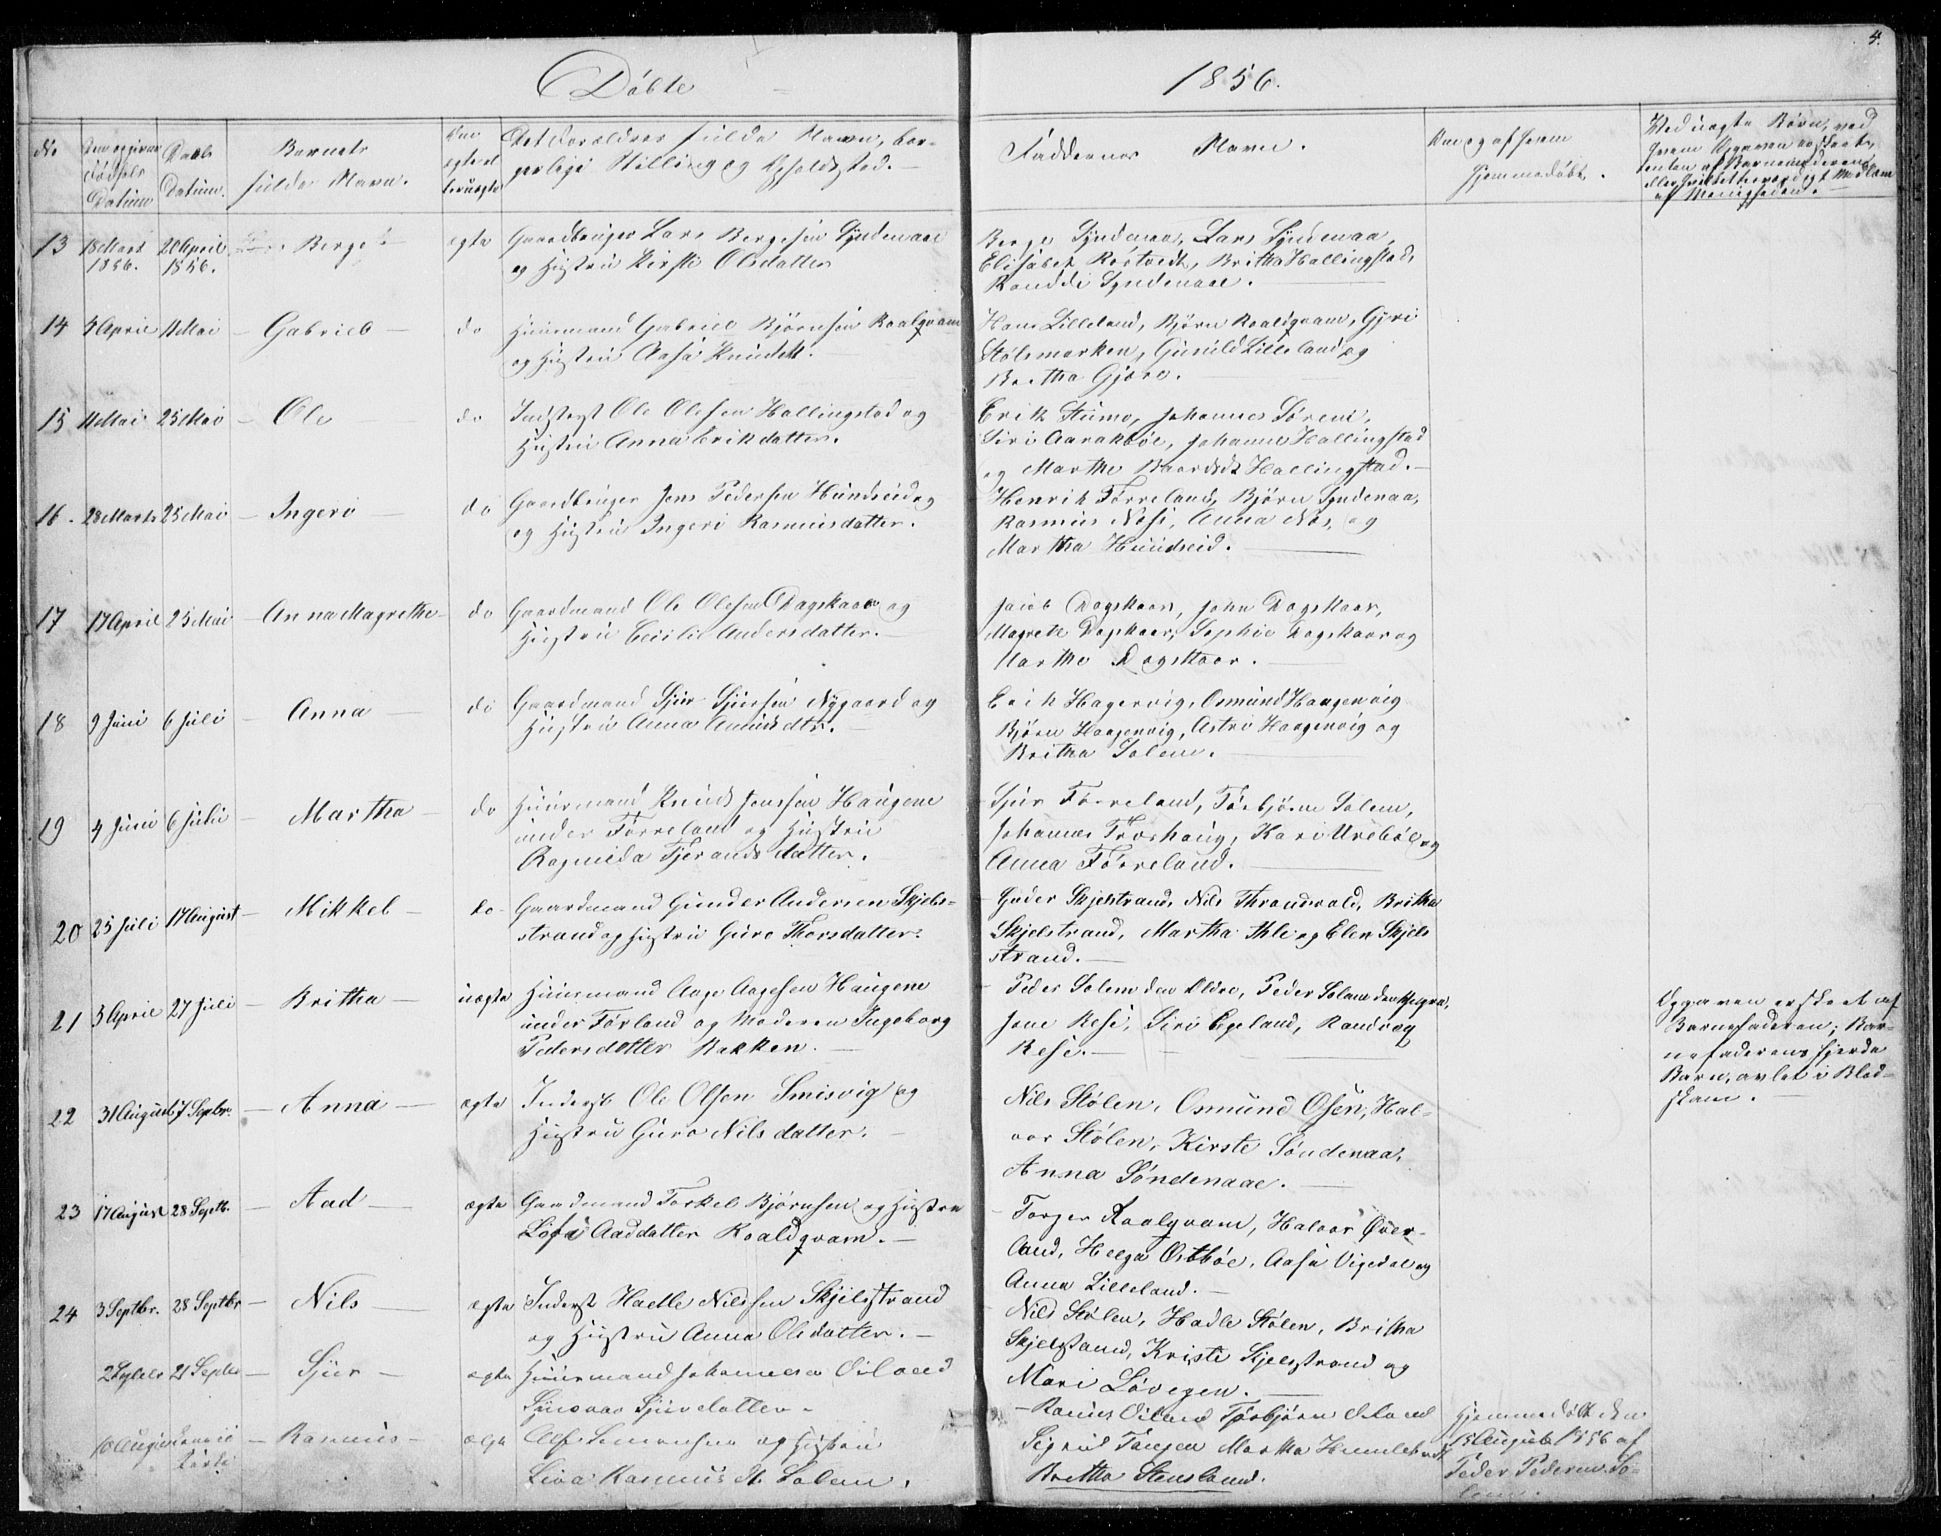 4.
Døbte
1856.
No
Den opgivne Fødsels Datum
Daabs Datum.
Barnets fulde Navn.
Om ægte el. uægte
Det Forældres fulde Navn, bor-
gerlige Stilling og Opholdssted.
Faddernes Navn.
Om og af hvem
hjemmedøbt.
Ved uægte Børn, ved
hvem Opgaven er skeet,
enten af Barnemoderen
eller
af Menigheden.
13 18 Marts 1856. 20 April 1856. Berge ægte Gaardbruger Lars Bergesen Syndenaae
og Hustru Kirsti Olsdatter
Berge Syndenaa, Lars Syndenaa,
Elisabet Røstvedt, Britha Hallingstad,
Randdi Syndenaae.
14 4 April 11 Mai – Gabriel – do Huusmand Gabriel Bjørnsen Roalqvam
og Hustru Aasa Knudsdtr.
Hans Lilleland, Bjørn Roaldqvam, Gyri
Stølsmarken, Gunild Lilleland og
Britha Gjøre.
15 11 Mai 25 Mai – Ole do Indsterst Ole Olesen Hallingstad og
Hustru Anna Erikdatter.
Erik Stumo, Johannes Sørene,
Siri Aarakbøe, Johanne Hallingstad
og Marthe Baardsdt Hallingstad.
16. 28 Marts 25 Mai – Ingeri – do Gaardbruger Jens Pedersen Hundseid og
og Hustru Ingeri Rasmusdatter.
Henrik Førreland, Bjørn Syndenaa,
Rasmus Næse, Anna Næs, og
Martha Hundseid.
17 17 April 25 Mai – Anna Magrethe – do Gaardmand Ole Olesen Dagskaar og
Hustru Cecilie Andersdatter.
Jacob Dagskaar, John Dagskaar,
Magrete Dagskaar, Sophie Dagskaar og
Marthe Dagskaar.
18 9 Juni 6 Juli – Anna – do Gaardmand Sjur Sjursen Nygaard og
Hustru Anna Amundsdtr.
Erik Hagenvig, Osmund Haagenvig
Bjørn Haagenvig, Astri Haagenvig og
Britha Solem.
19 4 Juni 6 Juli – Martha – do Huusmand Knud Jenssen Haugene
under Førreland og Hustru
Ragnilda Tjerandsdatter.
Sjur Førreland, Torbjørn Solem,
Johannes Træshaug, Kari Urebøe og
Anna Førreland.
20 25 Juli 17 August – Mikkel – do Gaardmand Gunder Andersen Skjels-
strand og Hustru Guro Thorsdatter.
Guder Skjelstrand, Nils Thrandvold, Britha
Skjelstrand, Martha Ihle og Elen Skjels
strand.
21 3 April 27 Juli – Britha – uægte Huusmand Aage Aagesen Haugene
under Førland og Moderen Ingeborg
Pedersdatter Bakken.
Peder Solem den Eldre, Peder Solem den Yngre,
Jone Rese, Siri Egeland, Randveg
Rese.
Opgaven er skeet af
Barnefaderen; Bar-
nefaderens fjerde
Barn, avlet i Blod-
skam.
22 31 August 7 Septbr. – Anna – ægte Inderst Ole Olsen Smisvig og
Hustru Guro Nilsdatter.
Nils Stølen, Osmund Osen, Hal-
vor Stølen, Kirste Søndenaa,
Anna Søndenaae.
23 17 August 28 Septb. – Aad – ægte Gaardmand Torkel Bjørnsen og Hustru
Lofi Aaddatter Roaldqvam.
Torger Roalqvam, Halvor Øver-
land, Helga Østbøe, Aasa Vigedal og
Anna Lilleland.
24 3 Septbr. 28 Septbr – Nils – ægte Inderst Hadle Nilssen Skjelstrand
og Hustru Anna Olsdatter.
Nils Stølen, Hadle Stølen, Britha
Skjelstand, Kriste Skjelstrand og
Mari Løvegen.
21 Septbr – Sjur – ægte Huusmand Johannes Eiland
Synnver Sjursdatter
Rasmus Eiland Torbjørn Eiland
Sigrid Tangen Martha
Britha Stensland.
10 August – Rasmus – ægte og Hustru
Rasmus Dt. Solem.
Hjemmedøbt den
15 August 1856 af
Peder Pedersen So-
lem.